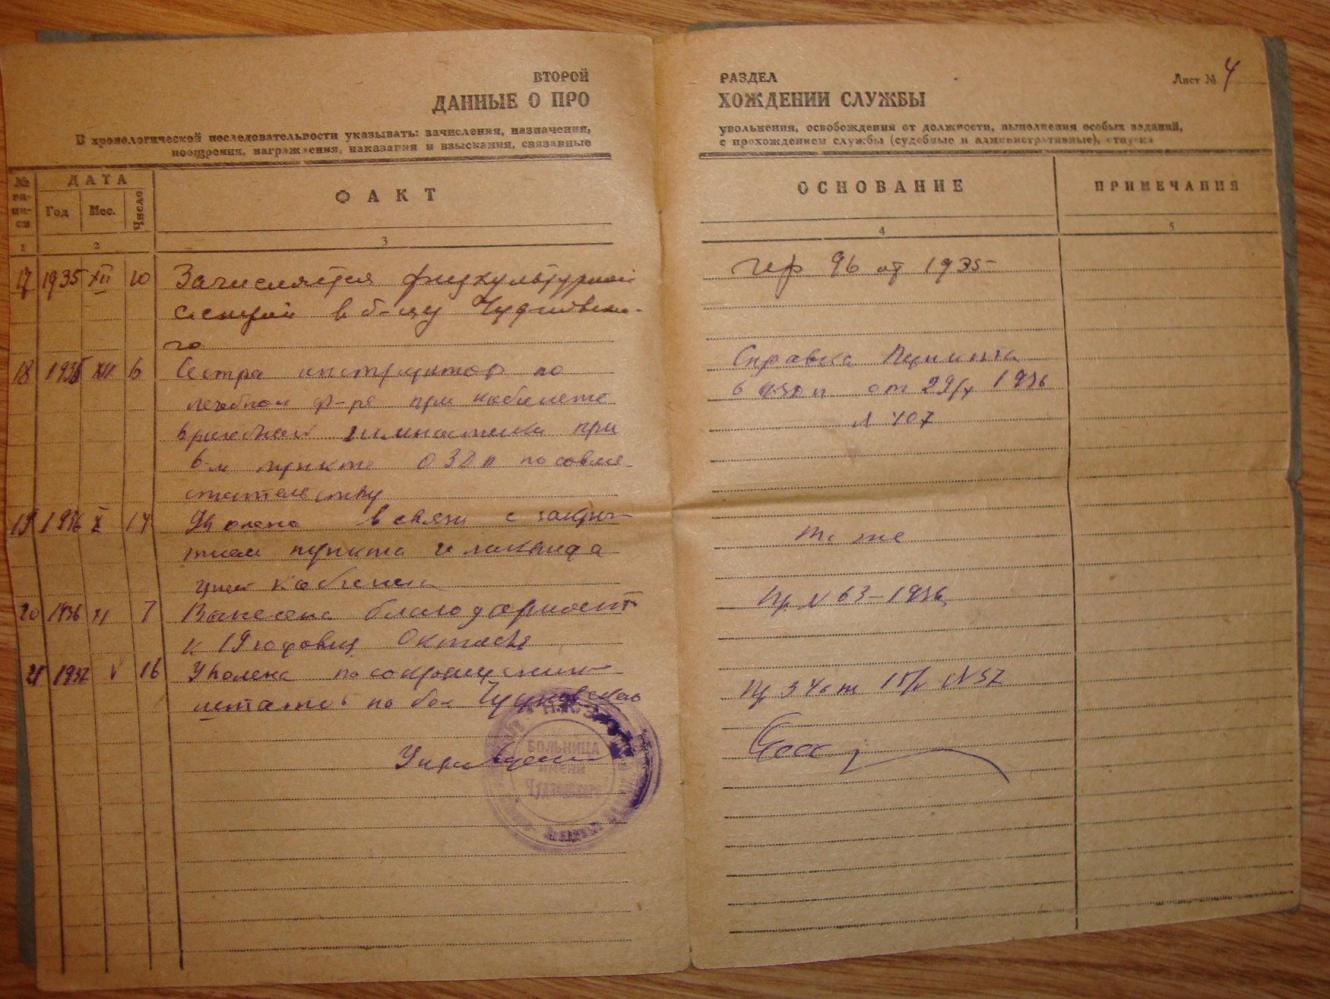 ВТОРОЙ
ДАННЫЕ О ПРО
В хронологической последовательности указывать: зачисления, назначения,
поощрения, награждения, наказания и взыскания, связанные
№ за- пи- си
ДАТА
Год Мес. Число
ФАКТ
1 2 3
17 1935 XII 10 Зачисляется физкультурной
сестрой в б-цу
го
18 1935 XII 6 Сестра инструктор по
лечебной ф-ре при кабинете
врачебной гимнастики при
6-м пункте ОЗДП по совме-
стительству
19 1936 X 14 Уволена в связи с закры-
тием пункта и ликвида
цией кабинета
20 1936 XI 7 Вынесена благодарность
к 19 годовщ Октября
21 1937 V 16 Уволена по сокращению
штатов по бол
БОЛЬНИЦА
ИМЕНИ
РАЗДЕЛ
Лист № 4
ХОЖДЕНИИ СЛУЖБЫ
увольнения, освобождения от должности, выполнения особых заданий,
с прохождением службы (судебные и административные), отпуска
ОСНОВАНИЕ ПРИМЕЧАНИЯ
4 5
пр 96 от 1935
Справка
от 29/X 1936
№ 407
То же
Пр № 63-1936
Пр 34